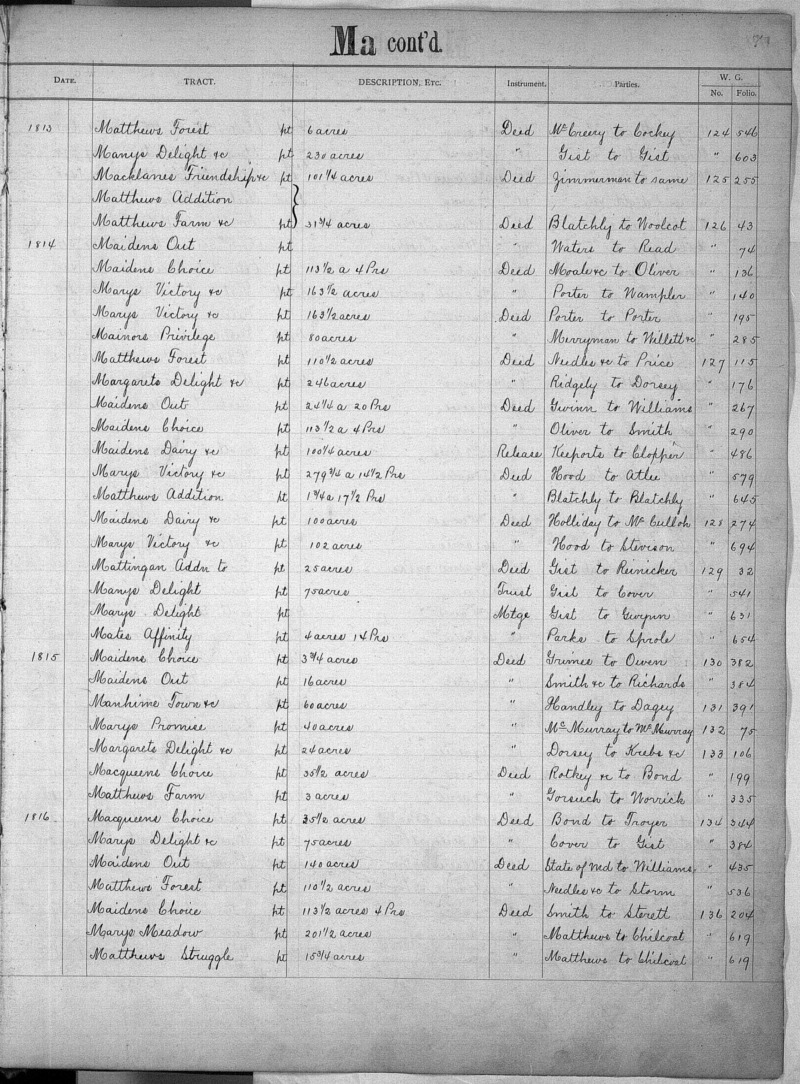 Ma cont'd.
DATE. TRACT. DESCRIPTION, ETC. Instrument. Parties. W. G.
No. Folio.
1813 Matthews Forest pt 6 acres Deed McCreery to Cockey 124 546
Marys Delight &c pt 230 acres " Gist to Gist " 603
Macklanes Friendship &c pt 101 1/4 acres Deed Zimmerman to same 125 255
Matthews Addition
Matthews Farm &c pt 31 3/4 acres Deed Blatchly to Woolcot 126 43
1814 Maidens Out pt " Waters to Read " 74
Maidens Choice pt 113 1/2 a 4 Prs Deed Moale &c to Oliver " 136
Marys Victory &c pt 163 1/2 acres " Porter to Wampler " 140
Marys Victory &c pt 163 1/2 acres Deed Porter to Porter " 195
Mainors Privilege pt 80 acres " Merryman to Willett &c " 285
Matthews Forest pt 110 1/2 acres Deed Needles &c to Price 127 115
Margarets Delight &c pt 246 acres " Ridgely to Dorsey " 176
Maidens Out pt 24 1/4 a 20 Prs Deed Gwinn to Williams " 267
Maidens Choice pt 113 1/2 a 4 Prs " Oliver to Smith " 290
Maidens Dairy &c pt 100 1/4 acres Release Keeports to Clopper " 486
Marys Victory &c pt 279 3/4 a 14 1/2 Prs Deed Hood to Atlee " 579
Matthews Addition pt 1 3/4 a 17 1/2 Prs " Blatchly to Blatchly " 645
Maidens Dairy &c pt 100 acres Deed Holliday to McCulloh 128 274
Marys Victory &c pt 102 acres " Hood to Stevison " 694
Mattingan Addn to pt 25 acres Deed Gist to Reinicker 129 32
Marys Delight pt 75 acres Trust Gist to Cover " 541
Marys Delight pt Mtge Gist to Gwynn " 631
Mates Affinity pt 4 acres 14 Prs " Parks to Sprole " 654
1815 Maidens Choice pt 3 3/4 acres Deed Grimes to Owen 130 382
Maidens Out pt 16 acres " Smith &c to Richards " 384
Manhime Town &c pt 60 acres " Handley to Dagey 131 391
Marys Promise pt 40 acres " McMurray to McMurray 132 75
Margarets Delight &c pt 24 acres " Dorsey to Krebs &c 133 106
Macqueens Choice pt 35 1/2 acres Deed Rotkey &c to Bond " 199
Matthews Farm pt 3 acres " Gorsuch to Worrick " 335
1816 Macqueens Choice pt 35 1/2 acres Deed Bond to Troyer 134 344
Marys Delight &c pt 75 acres " Cover to Gist " 384
Maidens Out pt 140 acres Deed State of Md to Williams " 435
Matthews Forest pt 110 1/2 acres " Needles &c to Storm " 536
Maidens Choice pt 113 1/2 acres 4 Prs Deed Smith to Sterett 136 204
Marys Meadow pt 201 1/2 acres " Matthews to Chilcoat " 619
Matthews Struggle pt 15 3/4 acres " Matthews to Chilcoat " 619